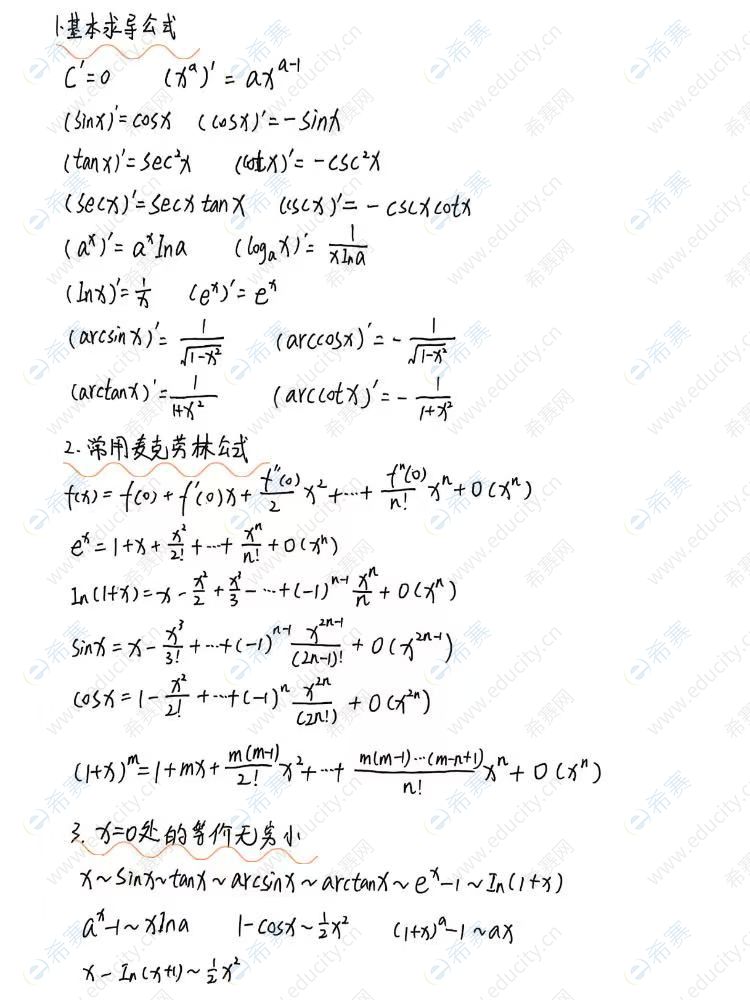 1.基本求导公式
C'=0 (x^a)'=ax^{a-1}
(sinx)'=cosx (cosx)'=-sinx
(tanx)'=sec²x (cotx)'=-csc²x
(secx)'=secxtanx (cscx)'=-cscxcotx
(a^x)'=a^x lna (log_a x)'=1/(xlna)
(lnx)'=1/x (e^x)'=e^x
(arcsinx)'=1/√(1-x²) (arccosx)'=-1/√(1-x²)
(arctanx)'=1/(1+x²) (arccotx)'=-1/(1+x²)
2.常用麦克劳林公式
f(x)=f(0)+f'(0)x+f''(0)/2 x²+…+f^n(0)/n! x^n+o(x^n)
e^x=1+x+x²/2!+…+x^n/n!+o(x^n)
ln(1+x)=x-x²/2+x³/3-…+(-1)^{n-1} x^n/n+o(x^n)
sinx=x-x³/3!+…+(-1)^{n-1} x^{2n-1}/(2n-1)!+o(x^{2n-1})
cosx=1-x²/2!+…+(-1)^n x^{2n}/(2n!)+o(x^{2n})
(1+x)^m=1+mx+m(m-1)/2! x²+…+m(m-1)…(m-n+1)/n! x^n+o(x^n)
3.x=0处的等价无穷小
x~sinx~tanx~arcsinx~arctanx~e^x-1~ln(1+x)
a^x-1~xlna 1-cosx~1/2x² (1+x)^a-1~ax
x-ln(x+1)~1/2x²
希赛
www.educity.cn
希赛网